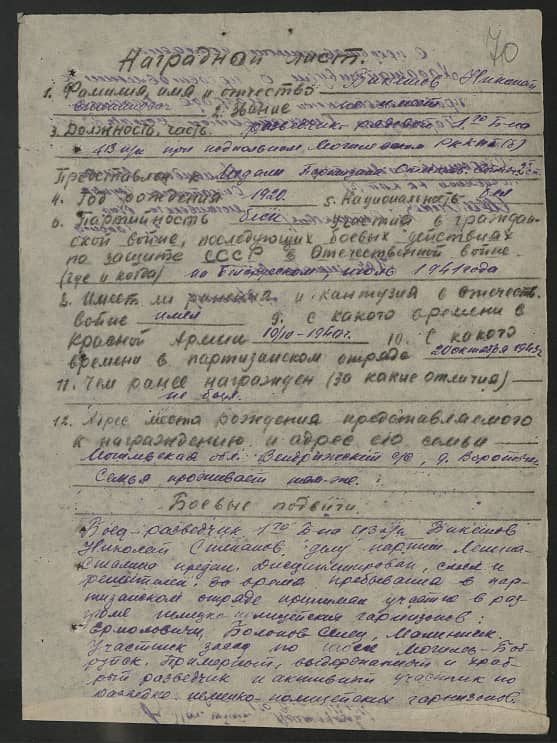 70
Наградной лист.
1. Фамилия, имя и отчество Викешов Николай
2. Звание
3. Должность, часть. разведчик рядовой 1го Б-на
413 п/к при подпольном Могилевском РККП(б)
Представлен к Медали Партизану Отечеств. войны 2 ст.
4. Год рождения 1920. 5. Национальность
6. Партийность б/п участия в граждан-
ской войне, последующих боевых действиях
по защите СССР в Отечественной войне.
(где и когда) на Белорусском, июль 1941 года
8. Имеет ли ранения и контузия в отечеств.
войне имел 9. с какого времени в
Красной Армии 10/IV-1940г. 10. С какого
времени в партизанском отряде 20 октября 1943г.
11. Чем ранее награжден (за какие отличия)
не был.
12. Адрес места рождения представляемого
к награждению и адрес его семьи
Могилевская обл. с/с, д.
Семья проживает там-же.
Боевые подвиги.
Боец-разведчик 1го Б-на 413 п/к Викешов
Николай делу партии Ленина-
Сталина предан. Дисциплинирован, смел и
решителен. За время пребывания в пар-
тизанском отряде принимал участие в раз-
громе немецко-полицейских гарнизонов:
Ермоловичи, Болонов Селец,
Участник засад по шоссе Могилев-Боб-
руйск. Примерный, выдержанный и храб-
рый разведчик и активный участник по
разведке немецко-полицейских гарнизонов.